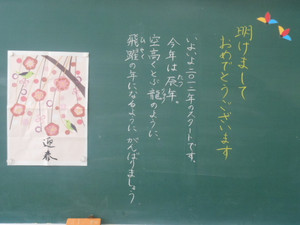 明けまして
おめでとうございます
いよいよ二〇一二年のスタートです。
今年は辰年。
空高くとぶ龍のように、
飛躍の年になるように がんばりましょう
迎春